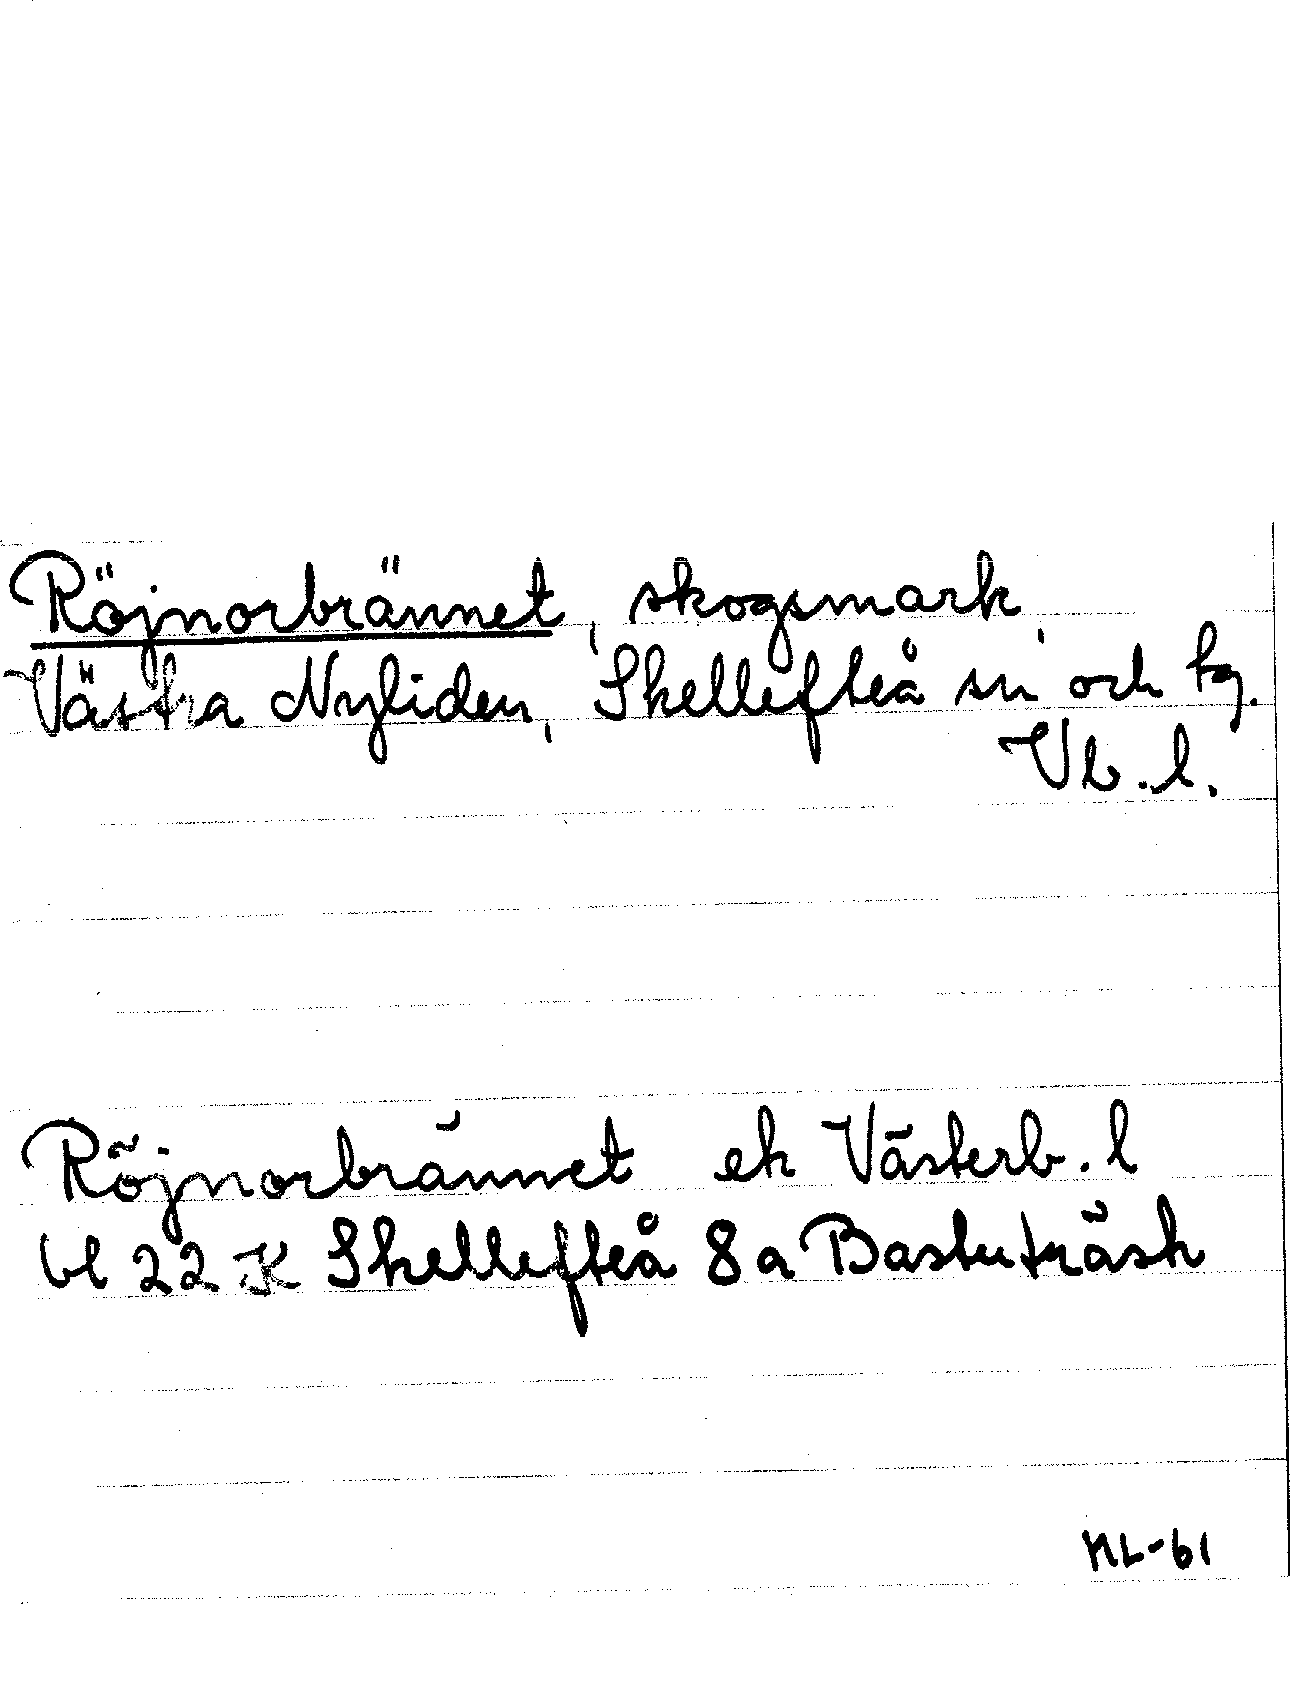 Röjnorbrännet, skogsmark
Västra Nyliden, Skellefteå sn och tg.
Vb.l.
Röjnorbrännet ek Västerb.l
bl 22 K Skellefteå 8a Bastuträsk
NL-61